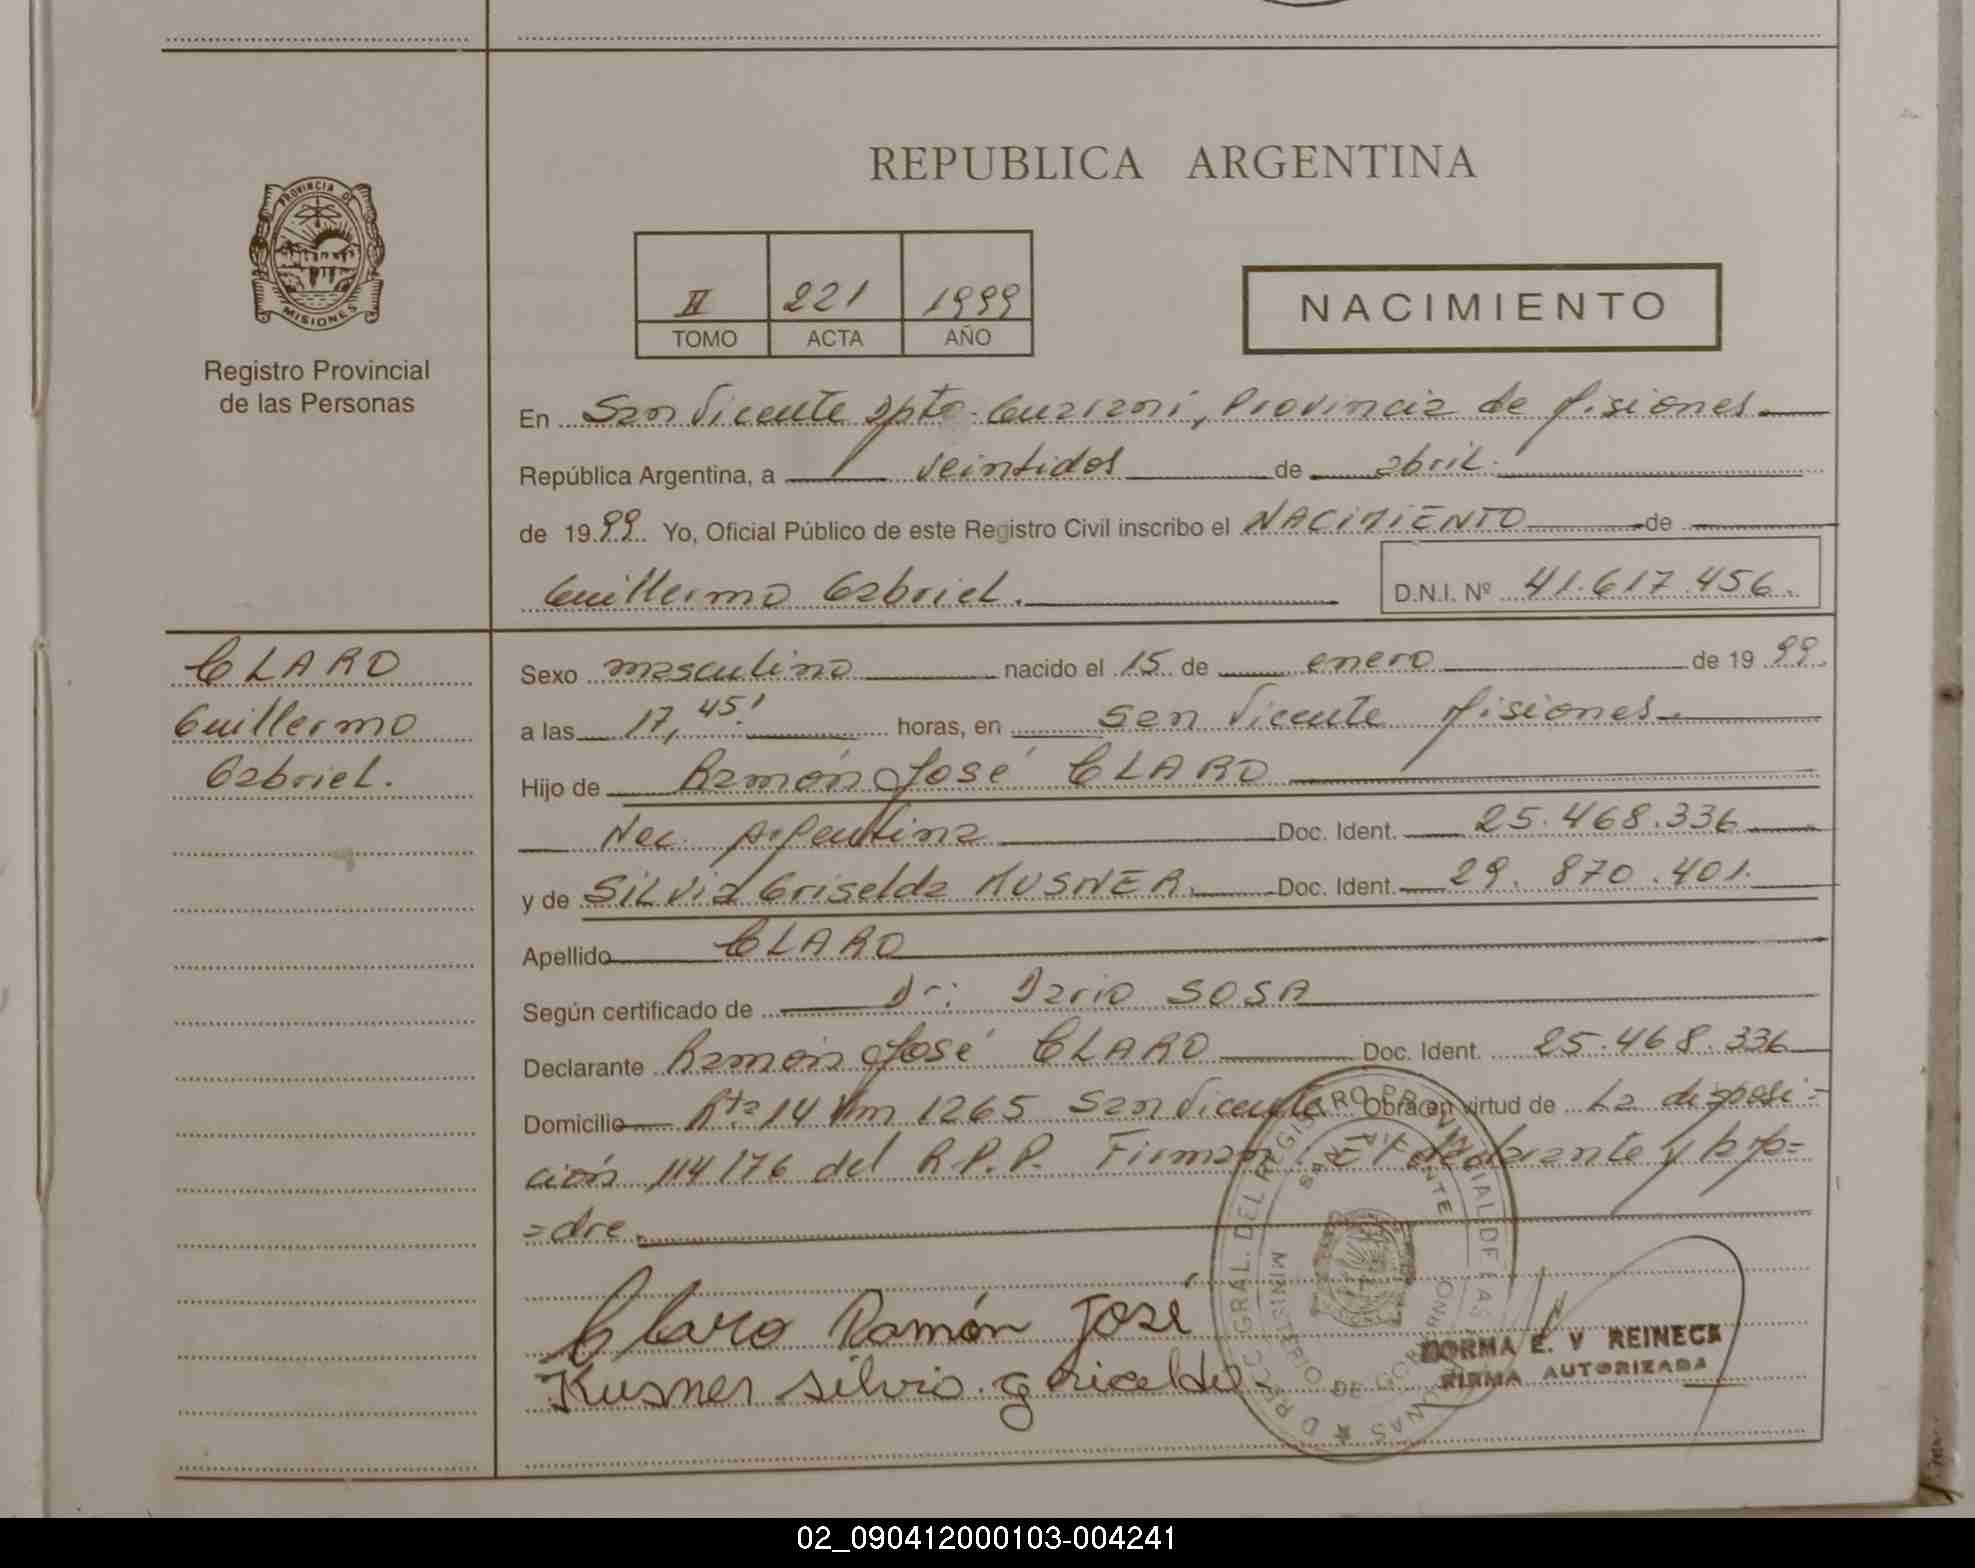 REPUBLICA ARGENTINA
PROVINCIA DE
MISIONES
Registro Provincial
de las Personas
II 221 1999
TOMO ACTA AÑO
NACIMIENTO
En San Vicente Dpto. Guaraní, Provincia de Misiones.
República Argentina, a veintidos de abril.
de 1999. Yo, Oficial Público de este Registro Civil inscribo el NACIMIENTO de
Guillermo Gabriel. D.N.I. Nº 41.617.456.
CLARO
Guillermo
Gabriel.
Sexo masculino nacido el 15 de enero de 1999.
a las 17,45' horas, en San Vicente Misiones.
Hijo de Ramón José CLARO
Nac. Argentina Doc. Ident. 25.468.336
y de Silvia Griselda KUSNER. Doc. Ident. 29.870.401.
Apellido CLARO
Según certificado de Dr: Dario SOSA
Declarante Ramón José CLARO Doc. Ident. 25.468.336
Domicilio Rta 14 Km 1265 San Vicente Obra en virtud de La disposi=
ción 114176 del R.P.P. Firman: El declarante y la
=dre.
Claro Ramón José
Kusner Silvia
DIRECC. GRAL. DEL REGISTRO PROVINCIAL DE LAS PERSONAS
SAN VICENTE
MINISTERIO DE GOBIERNO
NORMA E. V REINECK
FIRMA AUTORIZADA
02_090412000103-004241